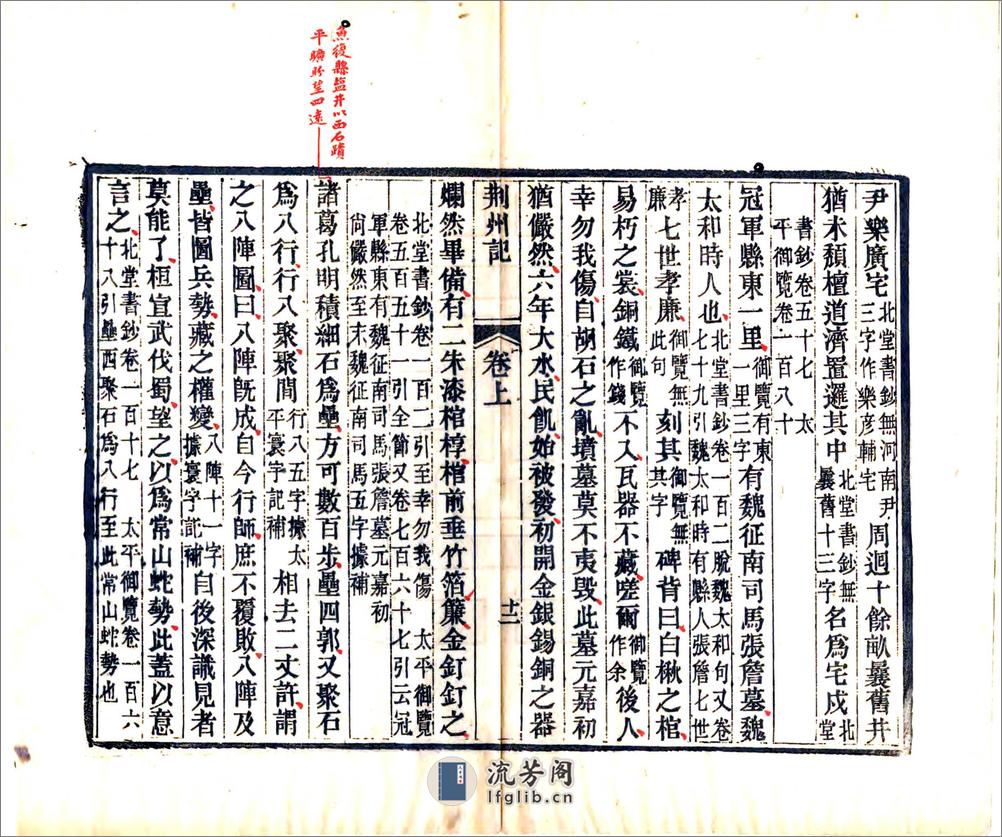 魚復縣鹽井以西石蹟
平曠盼望四遠
尹樂廣宅北堂書鈔無河南尹三字作樂彥輔宅周週十餘畝曩舊井
猶未頹檀道濟置邏其中北堂書鈔無曩舊十三字名爲宅戍北堂
書鈔卷五十七　太平御覽卷一百八十
冠軍縣東一里御覽有東一里三字有魏征南司馬張詹墓魏
太和時人也北堂書鈔卷一百二脫魏太和句又卷七十九引魏太和時有縣人張詹七世
孝廉七世孝廉御覽無此句刻其御覽無其字碑背曰白楸之棺
易朽之裳銅鐵御覽作錢不入瓦器不藏嗟爾御覽作余後人
幸勿我傷自胡石之亂墳墓莫不夷毀此墓元嘉初
猶儼然六年大水民飢始被發初開金銀錫銅之器
荆州記　卷上　十二
爛然畢備有二朱漆棺椁棺前垂竹箔簾金釘釘之
北堂書鈔卷一百二引至幸勿我傷　太平御覽卷五百五十一引全節又卷七百六十七引云冠
軍縣東有魏征南司馬張詹墓元嘉初尙儼然至末魏征南司馬五字據補
諸葛孔明積細石爲壘方可數百步壘四郭又聚石
爲八行行八聚聚間行八五字據太平寰宇記補相去二丈許謂
之八陣圖曰八陣旣成自今行師庶不覆敗八陣及
壘皆圖兵勢藏之權變八陣十一字據寰宇記補自後深識見者
莫能了桓宣武伐蜀望之以爲常山蛇勢此蓋以意
言之北堂書鈔卷一百十七　太平御覽卷一百六十八引壘西聚石爲八行至此常山蛇勢也
流芳阁
lfglib.cn